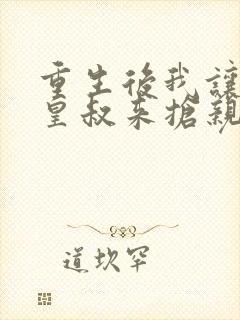 重生後我讓
皇叔来搶親
道坎罕